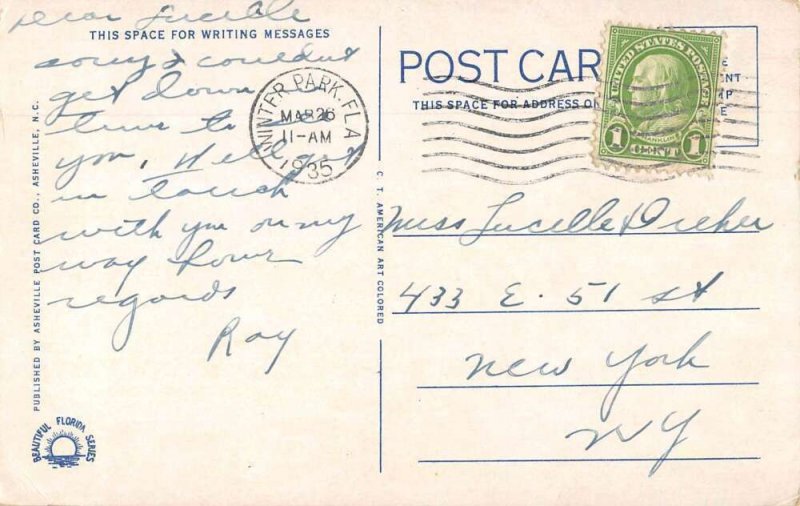 Dear Lucille
THIS SPACE FOR WRITING MESSAGES
sorry I couldn't
get down
time to
you. Will get
in touch
with you on my
way home
regards
Roy
PUBLISHED BY ASHEVILLE POST CARD CO., ASHEVILLE, N.C.
BEAUTIFUL FLORIDA SERIES
WINTER PARK, FLA.
MAR 26
11-AM
1935
C. T. AMERICAN ART COLORED
POST CAR
THIS SPACE FOR ADDRESS ON
UNITED STATES POSTAGE
FRANKLIN
1 CENT 1
E
NT
MP
E
Miss Lucille Dreher
433 E. 51 st
New York
NY